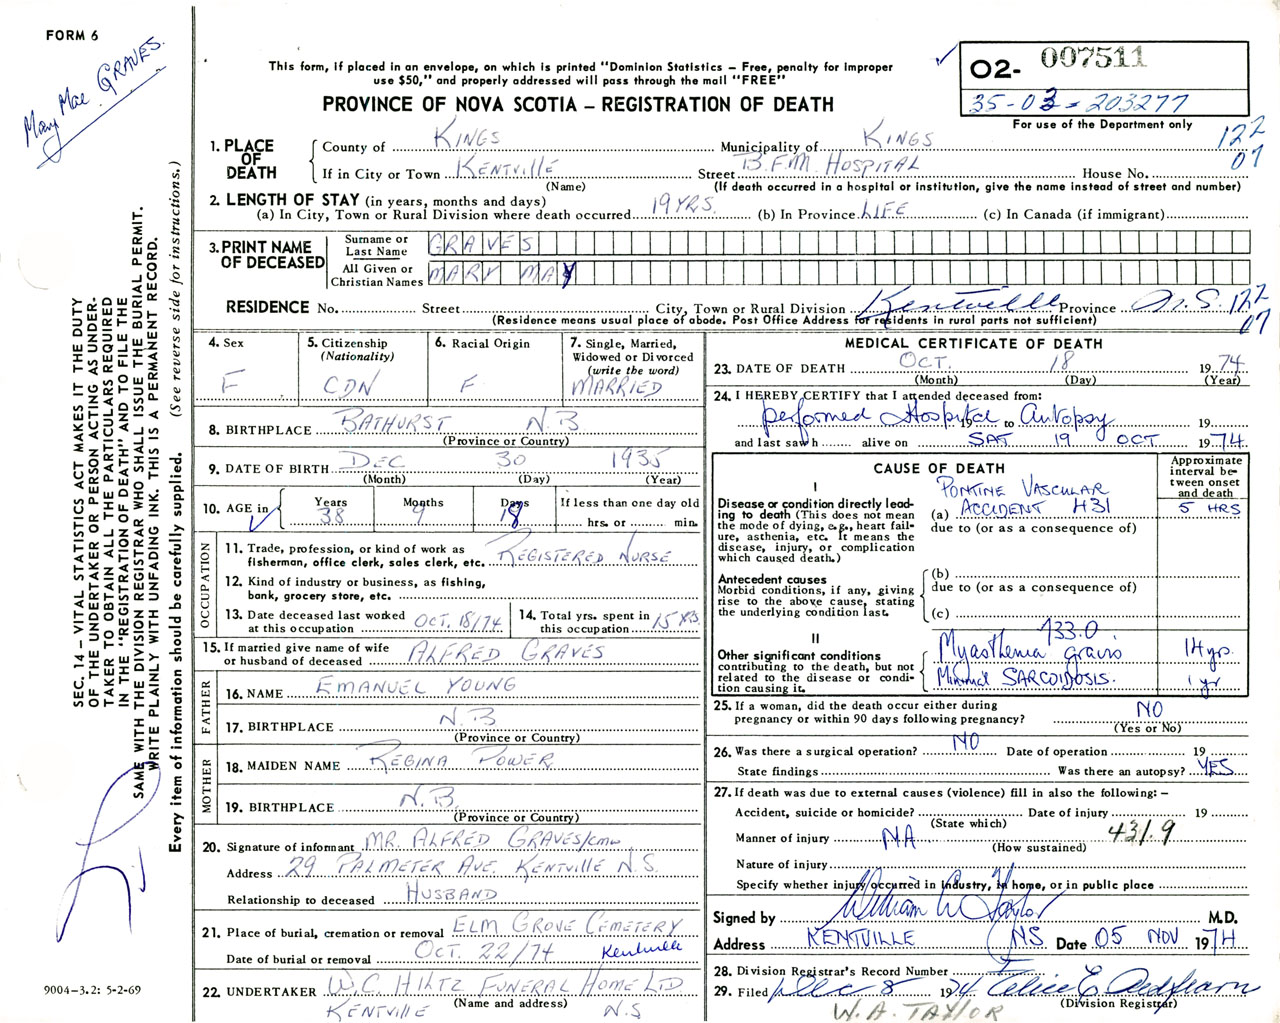 FORM 6
Mary Mae GRAVES.
This form, if placed in an envelope, on which is printed "Dominion Statistics — Free, penalty for improper
use $50," and properly addressed will pass through the mail "FREE"
PROVINCE OF NOVA SCOTIA — REGISTRATION OF DEATH
O2- 007511
35-03-203277
For use of the Department only
122
07
1. PLACE OF DEATH
County of KINGS Municipality of KINGS
If in City or Town KENTVILLE Street B.F.M. HOSPITAL House No.
(Name) (If death occurred in a hospital or institution, give the name instead of street and number)
2. LENGTH OF STAY (in years, months and days)
(a) In City, Town or Rural Division where death occurred 19 YRS. (b) In Province LIFE (c) In Canada (if immigrant)
3. PRINT NAME OF DECEASED
Surname or Last Name GRAVES
All Given or Christian Names MARY MAY
RESIDENCE No. Street City, Town or Rural Division Kentville Province N.S. 122
07
(Residence means usual place of abode. Post Office Address for residents in rural parts not sufficient)
4. Sex F
5. Citizenship (Nationality) CDN
6. Racial Origin F
7. Single, Married, Widowed or Divorced (write the word) MARRIED
8. BIRTHPLACE BATHURST N.B
(Province or Country)
9. DATE OF BIRTH DEC 30 1935
(Month) (Day) (Year)
10. AGE in Years 38 Months 9 Days 18 If less than one day old
hrs. or min.
OCCUPATION
11. Trade, profession, or kind of work as
fisherman, office clerk, sales clerk, etc. REGISTERED NURSE
12. Kind of industry or business, as fishing,
bank, grocery store, etc.
13. Date deceased last worked
at this occupation OCT. 18/74
14. Total yrs. spent in
this occupation 15 YRS
15. If married give name of wife
or husband of deceased ALFRED GRAVES
FATHER
16. NAME EMANUEL YOUNG
17. BIRTHPLACE N.B
(Province or Country)
MOTHER
18. MAIDEN NAME REGINA POWER
19. BIRTHPLACE N.B.
(Province or Country)
20. Signature of informant MR. ALFRED GRAVES/cmw
Address 29 PALMETER AVE. KENTVILLE N.S.
Relationship to deceased HUSBAND
21. Place of burial, cremation or removal ELM GROVE CEMETERY
Date of burial or removal OCT. 22/74 Kentville
22. UNDERTAKER W.C. HILTZ FUNERAL HOME LTD
(Name and address)
KENTVILLE N.S
MEDICAL CERTIFICATE OF DEATH
23. DATE OF DEATH OCT. 18 1974
(Month) (Day) (Year)
24. I HEREBY CERTIFY that I attended deceased from:
performed Hospital Autopsy
19 to 19
and last saw h alive on SAT 19 OCT 1974
CAUSE OF DEATH
Approximate interval between onset and death
I
Disease or condition directly leading to death (This does not mean the mode of dying, e.g., heart failure, asthenia, etc. It means the disease, injury, or complication which caused death.)
PONTINE VASCULAR
(a) ACCIDENT 431 5 HRS
due to (or as a consequence of)
Antecedent causes
Morbid conditions, if any, giving rise to the above cause, stating the underlying condition last.
(b)
due to (or as a consequence of)
(c)
II
733.0
Other significant conditions
contributing to the death, but not related to the disease or condition causing it.
Myasthenia gravis 14 yrs.
Minimal SARCOIDOSIS. 1 yr
25. If a woman, did the death occur either during
pregnancy or within 90 days following pregnancy? NO
(Yes or No)
26. Was there a surgical operation? NO Date of operation 19
State findings Was there an autopsy? YES
27. If death was due to external causes (violence) fill in also the following: —
Accident, suicide or homicide? Date of injury 19
(State which)
Manner of injury NA 431.9
(How sustained)
Nature of injury
Specify whether injury occurred in industry, in home, or in public place
Signed by William A Taylor M.D.
Address KENTVILLE NS Date 05 NOV 1974
28. Division Registrar's Record Number
29. Filed Dec 8 1974
(Division Registrar)
W. A. TAYLOR
SEC. 14 — VITAL STATISTICS ACT MAKES IT THE DUTY
OF THE UNDERTAKER OR PERSON ACTING AS UNDER-
TAKER TO OBTAIN ALL THE PARTICULARS REQUIRED
IN THE "REGISTRATION OF DEATH" AND TO FILE THE
SAME WITH THE DIVISION REGISTRAR WHO SHALL ISSUE THE BURIAL PERMIT.
WRITE PLAINLY WITH UNFADING INK. THIS IS A PERMANENT RECORD.
Every item of information should be carefully supplied. (See reverse side for instructions.)
9004-3.2: 5-2-69